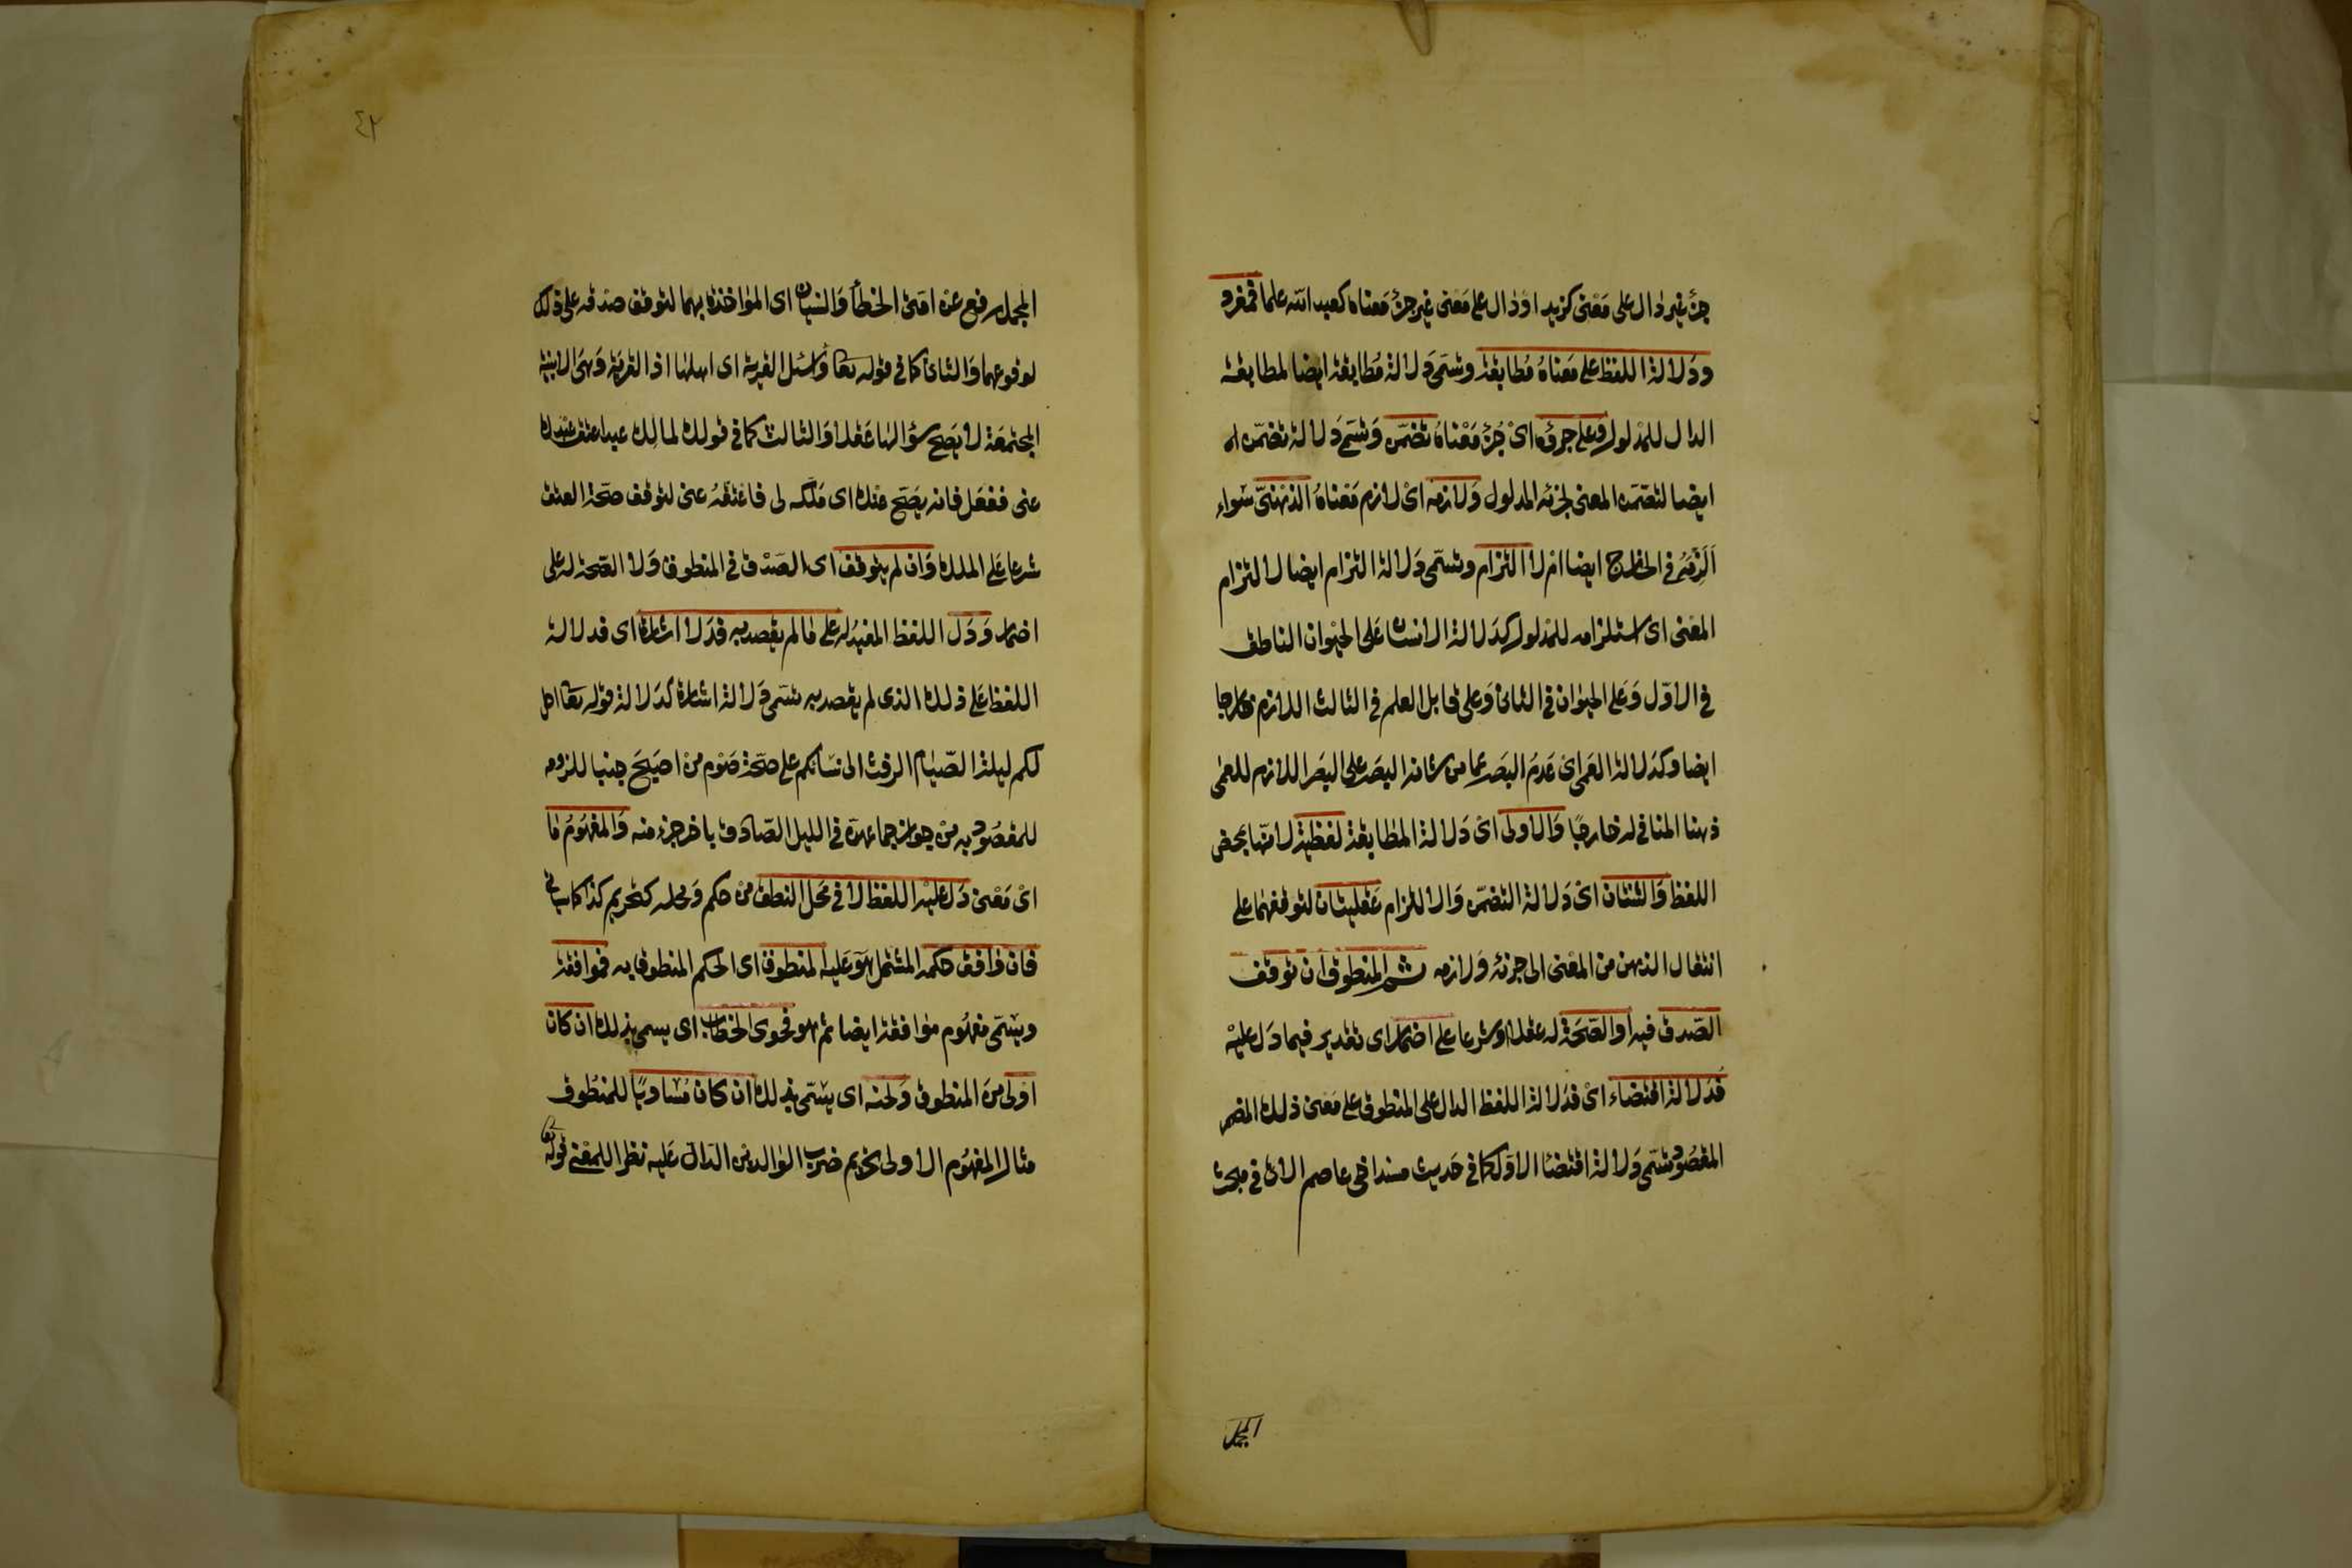 جزء غير دال على معنى كزيد او دال على معنى غير جزء معناه كعبد الله علما فمفرد
ودلالة اللفظ على معناه مطابقة وتسمى دلالة مطابقة ايضا لمطابقة
الدال للمدلول وعلى جزؤه اى جزء معناه تضمن وتسمى دلالة تضمن
ايضا لتضمن المعنى لجزئه المدلول ولازمه اى لازم معناه الذهنى سواء
الزمه فى الخارج ايضا ام لا التزام وتسمى دلالة التزام ايضا لالتزام
المعنى اى استلزامه للمدلول كدلالة الانسان على الحيوان الناطق
فى الاول وعلى الحيوان فى الثانى وعلى قابل العلم فى الثالث اللازم خارجا
ايضا وكدلالة العمى اى عدم البصر عما من شانه البصر على البصر اللازم للعمى
ذهنا المنافى له خارجا والاولى اى دلالة المطابقة لفظية لانها بمحض
اللفظ والثنتان اى دلالة التضمن والالتزام عقليتان لتوقفهما على
انتقال الذهن من المعنى الى جزئه ولازمه ثم المنطوق ان توقف
الصدق فيه او الصحة له عقلا او شرعا على اضمار اى تقدير فيما دل عليه
فدلالة اقتضاء اى فدلالة اللفظ الدال على المنطوق على معنى ذلك المضمر
المقصود تسمى دلالة اقتضا الاول كما فى حديث مسند اخى عاصم الاتى فى مبحث
المجمل
٤٢
المجمل رفع عن امتى الخطأ والنسيان اى المواخذة بهما لتوقف صدقه على ذلك
لوقوعهما والثانى كما فى قوله تعا واسئل القرية اى اهلها اذ القرية وهى الابنية
المجتمعة لا يصح سؤالها عقلا والثالث كما فى قولك لمالك عبد اعتق عبدك
عنى ففعل فانه يصح عنك اى ملكه لى فاعتقه عنى لتوقف صحة العتق
شرعا على الملك وان لم يتوقف اى الصدق فى المنطوق ولا الصحة له على
اضمار ودل اللفظ المفيد له على ما لم يقصد به فدلا اشارة اى فدلالة
اللفظ على ذلك الذى لم يقصد به تسمى دلالة اشارة كدلالة قوله تعا احل
لكم ليلة الصيام الرفث الى نسائكم على صحة صوم من اصبح جنبا للزومه
للمقصود به من جواز جماعهن فى الليل الصادق باخر جزء منه والمفهوم ما
اى معنى دل عليه اللفظ لا فى محل النطق من حكم ومحله كتحريم كذا كما سياتى
فان وافق حكمه المشتمل هو عليه المنطوق اى الحكم المنطوق به فموافقة
ويسمى مفهوم موافقة ايضا ثم هو فحوى الخطاب اى يسمى بذلك ان كان
اولى من المنطوق ولحنه اى يسمى بذلك ان كان مساويا للمنطوق
مثال المفهوم الاولى تحريم ضرب الوالدين الدال عليه نظرا للمعنى قوله تعا